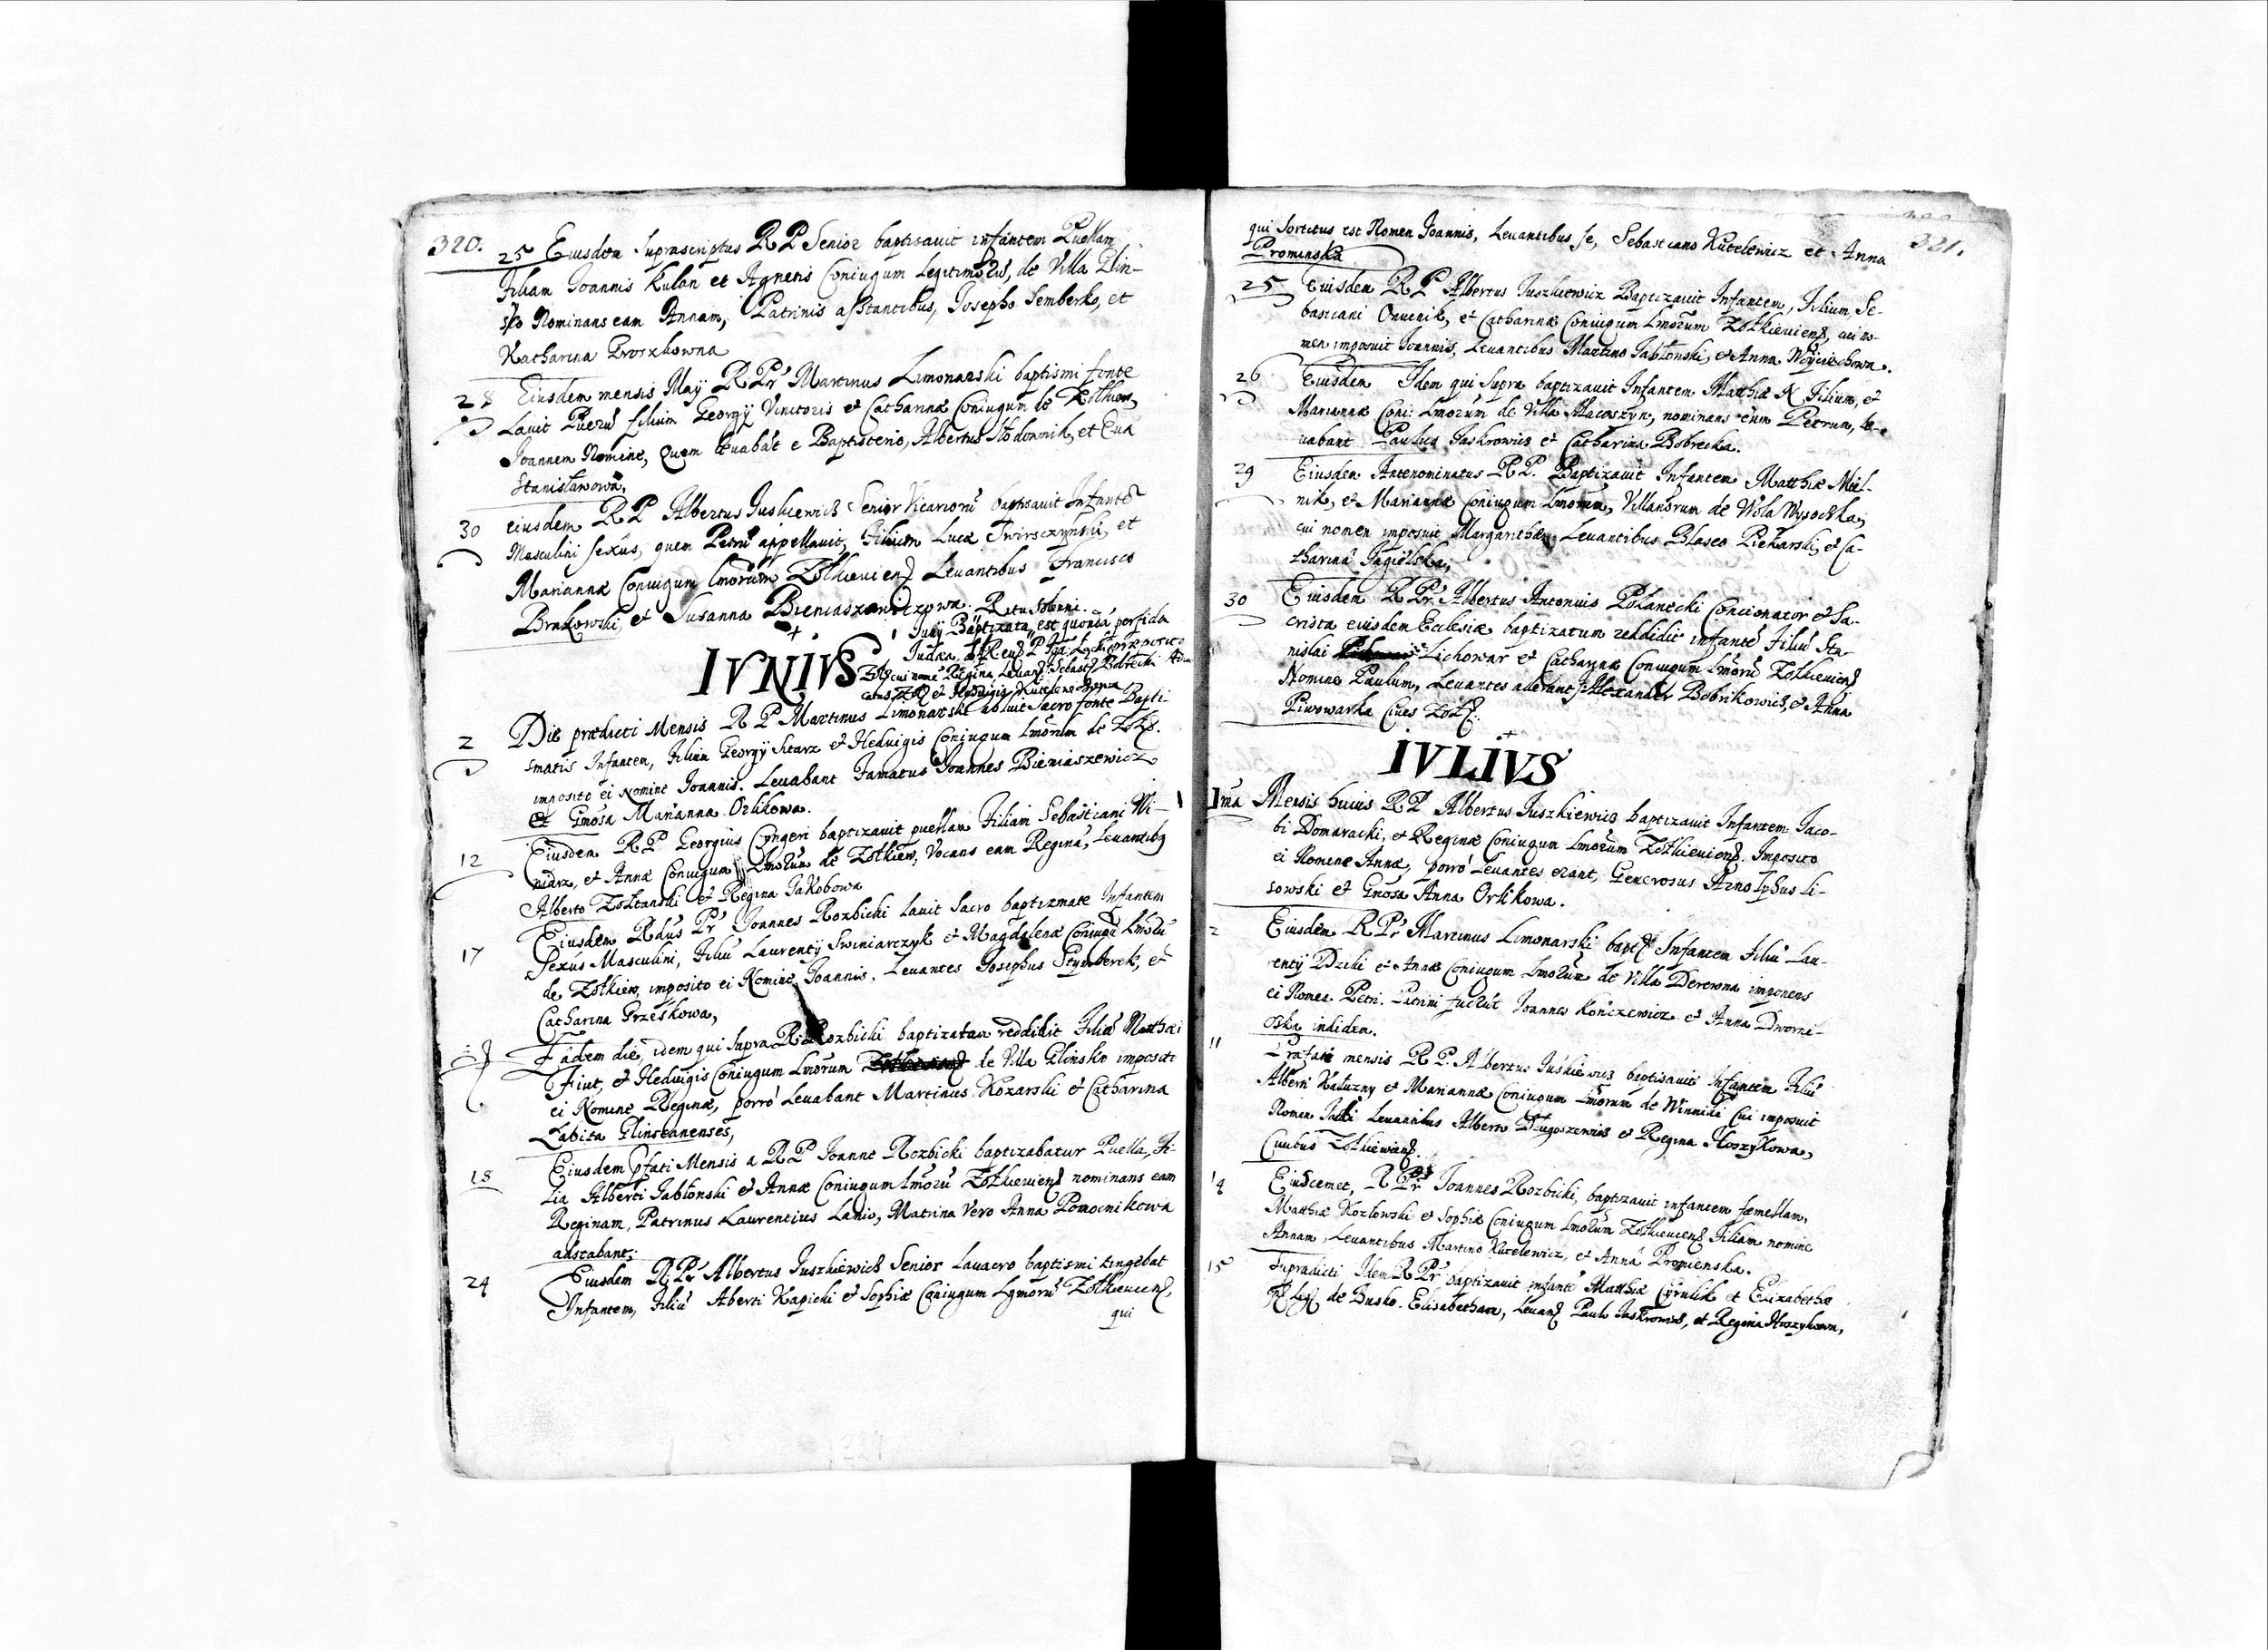 320.
25 Eiusdem Suprascriptus RP Senior baptisavit infantem Puellam
Filiam Joannis Kulan et Agnetis Coniugum Legitimorũ, de Villa Glin-
sko Nominans eam Annam, Patrinis asstantibus, Josepho Semberko, et
Katharina Proszkowna
28 Eiusdem mensis Maÿ RPr Martinus Limonarski baptismi fonte
Lavit Puerũ filium Georgÿ Vinitoris et Catharinæ Coniugum de Zołkiew,
Joannem Nomine, Quem levabãt e Baptisterio, Albertus Stodonnik, et Eva
Stanisławowa,
30 eiusdem RP Albertus Juskiewicz Senior Vicariorũ baptisavit Infantẽ
Masculini sexûs, quem Petrũ appellavit, Filium Lucæ Swirsczÿnski, et
Mariannæ Coniugum Lmorum Zołkieviens Levantibus Francisco
Brakowski, et Susanna Bieniaszowiczowa. Ritu Solenni.
1 Junÿ Baptizata est quondã perfida
Judæa
IVNIVS
cui nomẽ Regina, Levan: Sebast: Bobrecki
et Hedvigis
2 Die prædicti Mensis RP Martinus Limonarski abluit Sacro fonte Bapti-
smatis Infantem, Filium Georgÿ Starz et Hedvigis Coniugum Lmorum de Zołk.
imposito ei Nomine Joannis. Levabant Famatus Joannes Bieniaszewicz
et Gnosa Marianna Orlikowa.
12 Eiusdem RP Georgius Cyngeri baptizavit puellam Filiam Sebastiani Wi-
niarz, et Annæ Coniugum Lmorum de Zołkiew, Vocans eam Reginã, Levantibq
Alberto Zołtanski et Regina Jakobowa
17 Eiusdem Rdus Pr Joannes Rozbicki Lavit Sacro baptizmate Infantem
Sexûs Masculini, Filiũ Laurentÿ Swiniarczyk et Magdalenæ Coniugũ Lmorũ
de Zołkiew, imposito ei Nomine Joannis. Levantes Josephus Stymberek, et
Catharina Grzeskowa,
Eâdem die, idem qui supra R. Rozbicki baptizatam reddidit Filiã Matthæi
Fiut, et Hedvigis Coniugum Lmorum de Villa Glinsko imposito
ei Nomine Reginæ, porrò Levabant Martinus Kozarski et Catharina
Labita Glinscanenses,
18 Eiusdem pfati Mensis a RP Joanne Rozbicki baptizabatur Puella, Fi-
lia Alberti Jabłonski et Annæ Coniugum Lmorũ Zołkieviens nominans eam
Reginam, Patrinus Laurentius Lanio, Matrina Vero Anna Pomocnikowa
adstabant.
24 Eiusdem RPr Albertus Juszkiewicz Senior Lavacro baptismi tingebat
Infantem, Filiũ Alberti Kapicki et Sophiæ Coniugum Lgmorũ Zołkieviens,
qui
321.
qui Sortitus est Nomen Joannis, Levantibus se, Sebastiano Kutelewicz et Anna
Prominska
25 Eiusdem RP Albertus Juszkiewicz Baptizavit Infantem, Filium, Se-
bastiani Onucnik, et Catharinæ Coniugum Lmorum Zołkieviens, cui no-
men imposuit Joannis, Levantibus Martino Jabłonski, et Anna Woyciechowa.
26 Eiusdem Idem qui Supra baptizavit Infantem Matthiæ N Filium, et
Mariannæ Coni: Lmorum de Villa Macoszyn, nominans eum Petrum, le-
vabant Paulus Jaskrowicz et Catharina Bobrecka.
29 Eiusdem Antenominatus RP. Baptizavit Infantem Matthiæ Miel-
nik, et Mariannæ Coniugum Lmorum, Villanorum de Wola Wysocka,
cui nomen imposuit Margarethæ, Levantibus Blaseo Piekarski, et Ca-
tharina Jagielska,
30 Eiusdem RPr. Albertus Antonius Połanecki Concionator et Sa-
crista eiusdem Ecclesiæ baptizatum reddidit infantẽ Filiũ Sta-
nislai Lichowar et Catharinæ Coniugum Lmorũ Zołkieviens
Nomine Paulum, Levantes aderant Alexander Bobrikowicz, et Anna
Piwowarka Cives Zołk.
IVLIVS
1ma Mensis huius RP Albertus Juszkiewicz baptizavit Infantem Jaco-
bi Domaracki, et Reginæ Coniugum Lmorum Zołkieviens. Imposito
ei Nomine Annæ, porrò Levantes erant, Generosus Arnolphus Li-
sowski et Gnosa Anna Orlikowa.
2 Eiusdem RPr Martinus Limonarski bapt: Infantem Filiũ Lau-
rentÿ Dziki et Annæ Coniugum Lmorum de Villa Derewna imponens
ei Nomen Petri. Patrini fuerũt Joannes Kończewicz et Anna Dworni-
cska indidem.
11 Præfati mensis RP. Albertus Juskiewicz baptisavit Infantem Filiũ
Alberti Kałuzny et Mariannæ Coniugum Lmorum de Winniki Cui imposuit
Nomen Jacobi Levantibus Alberto Długoszewicz et Regina Hoszykowa,
Civibus Zołkieviens.
14 Eiuscemet, RPr Joannes Rozbicki, baptizavit infantem fœmellam,
Matthiæ Kozłowski et Sophiæ Coniugum Lmorum Zołkieviens Filiam nomine
Annam, Levantibus Martino Kutelewicz, et Anna Promienska.
15 Supradicti Idem RPr baptizavit infantẽ Matthiæ Cyrulik et Elizabethæ
de Busko. Elisabetham, Levan: Paulo Jaskrowicz, et Regina Hoszykowa,